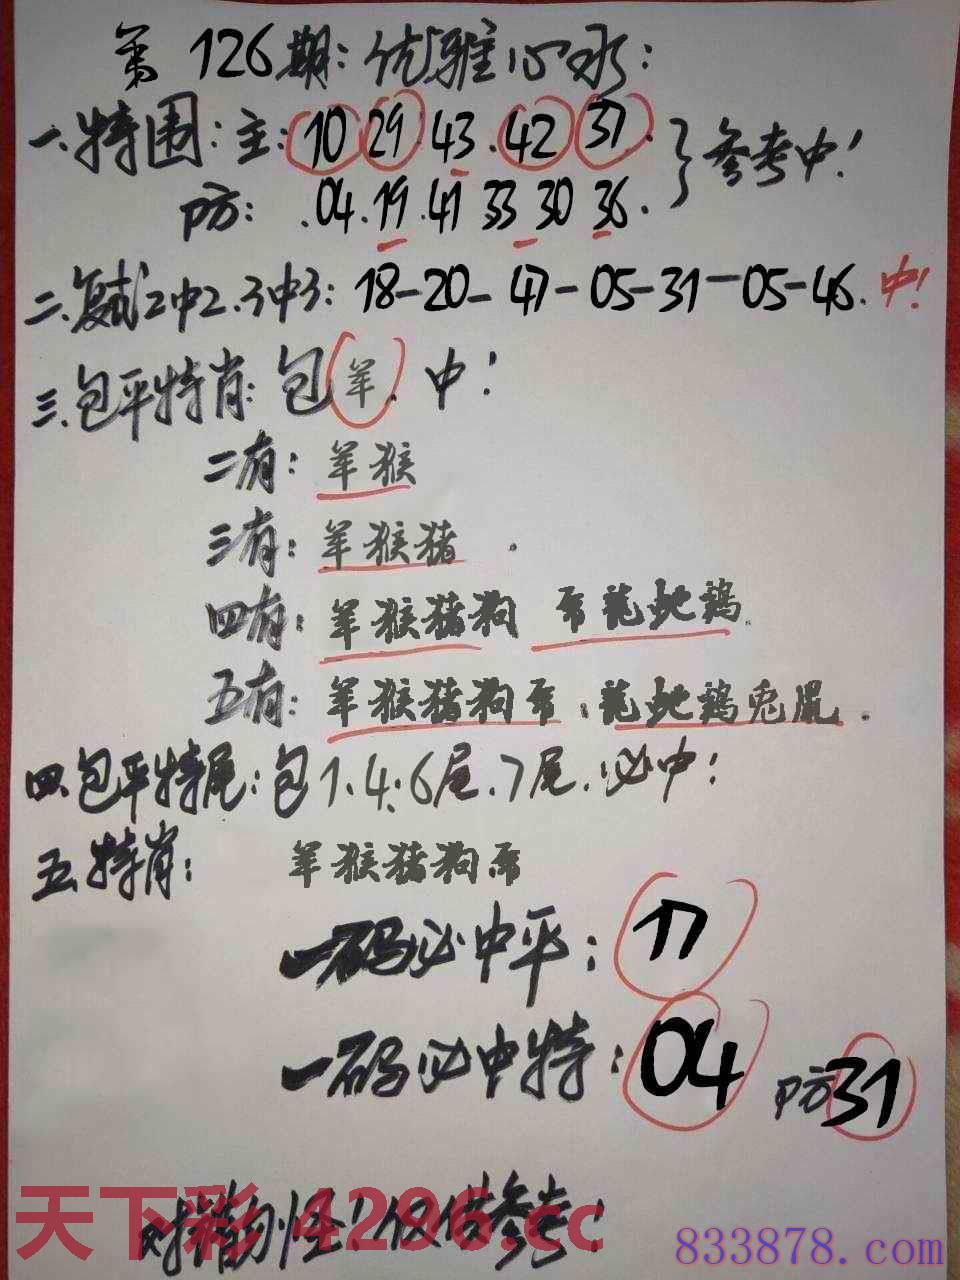 第126期:优雅心水:
一.特围:主:10 29.43.42 37.}参考中!
防:.04.19.41 33 30 36.
二.复式2中2.3中3:18-20-47-05-31-05-46.中!
三.包平特肖:包羊.中!
二有:羊猴
三有:羊猴猪.
四有:羊猴猪狗 龙蛇鸡.
五有:羊猴猪狗 龙蛇鸡兔鼠.
四.包平特尾:包1.4.6尾.7尾.必中!
五.特肖:羊猴猪狗
一码必中平:17
一码必中特:04 防31
天下彩 4296.cc
对错勿怪!仅供参考!
833878.com